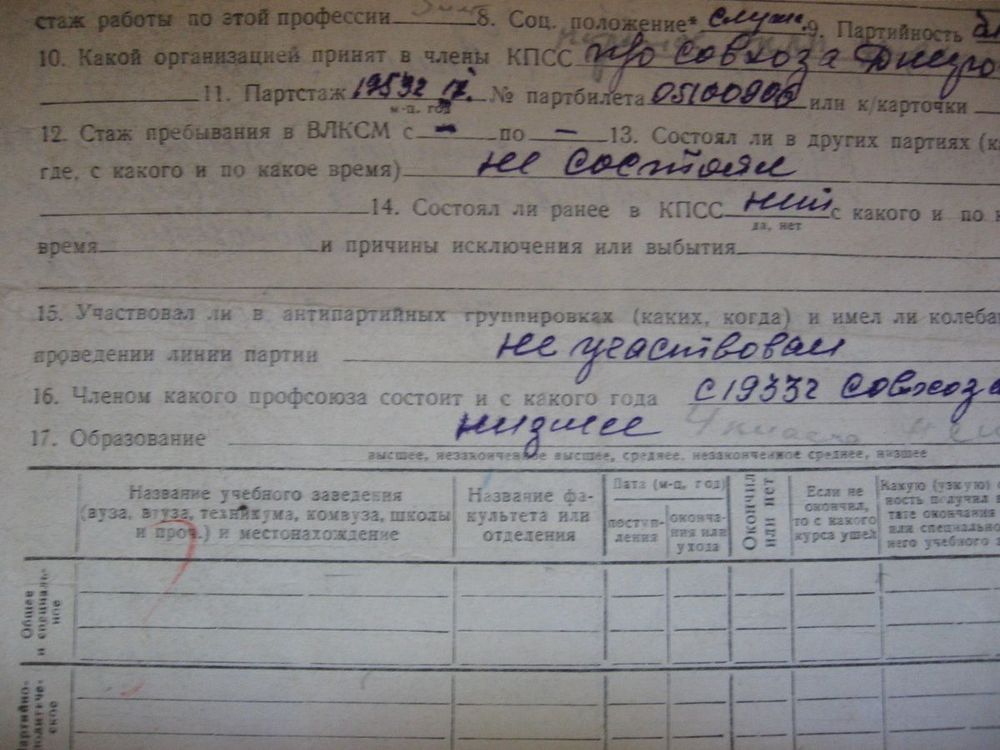 стаж работы по этой профессии 8. Соц. положение* служ. 9. Партийность
10. Какой организацией принят в члены КПСС п/о совхоза Днепро
11. Партстаж 1953г № партбилета 05100906 или к/карточки
м-ц. год
12. Стаж пребывания в ВЛКСМ с – по – 13. Состоял ли в других партиях (к
где, с какого и по какое время) не состоял
14. Состоял ли ранее в КПСС нит с какого и по к
да, нет
время и причины исключения или выбытия
15. Участвовал ли в антипартийных группировках (каких, когда) и имел ли колеба
проведении линии партии не участвовал
16. Членом какого профсоюза состоит и с какого года с 1933г совхоза
17. Образование низшее 4 класса
высшее, незаконченное высшее, среднее, незаконченное среднее, низшее
Название учебного заведения
(вуза, втуза, техникума, комвуза, школы
и проч.) и местонахождение
Название фа-
культета или
отделения
Дата (м-ц, год)
поступ-
ления
оконча-
ния или
ухода
Окончил
или нет
Если не
окончил,
то с какого
курса ушел
Какую (узкую) с
ность получил в
тате окончания
или специально
него учебного з
Общее
и специаль-
ное
Партийно-
политиче-
ское